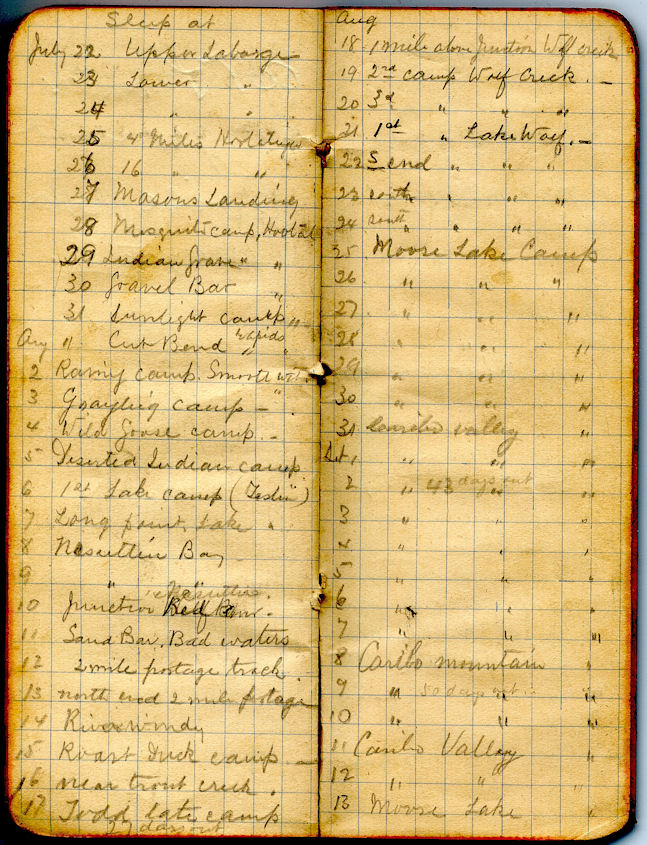 Sleep at
July 22 Upper Labarge
23 Lower "
24 " "
25 4 Miles
26 16 " "
27 Masons Landing
28 Mosquito camp,
29 Indian Grave " "
30 Gravel Bar "
31 Sunlight camp "
Aug " Cut Bend rapids "
2 Rainy camp. Smooth
3 Grayling camp -
4 Wild Goose camp. -
5 Deserted Indian camp
6 1st Lake camp (Teslin)
7 Long point, Lake "
8 Nesuttin Bay
9 " "
10 Junction
11 Sand Bar, Bad waters
12 2 mile portage track.
13 north end 2 mile portage
14 River windy
15 Roast Duck camp -
16 near trout creek.
17 Todd late camp
27 days out
Aug
18 1 mile above Junction Wolf creek
19 2nd camp Wolf Creek. -
20 3d " " "
21 1st " Lake Wolf. -
22 S end " " "
23 south " " "
24 south " " "
25 Moose Lake Camp
26 " " "
27 " " "
28 " " "
29 " " "
30 " " "
31 Caribo valley "
1 " " "
2 " 43 days out "
3 " " "
4 " " "
5 " " "
6 " " "
7 " " "
8 Caribo mountain "
9 " 50 days out "
10 " " "
11 Caribo Valley "
12 " " "
13 Moose Lake "